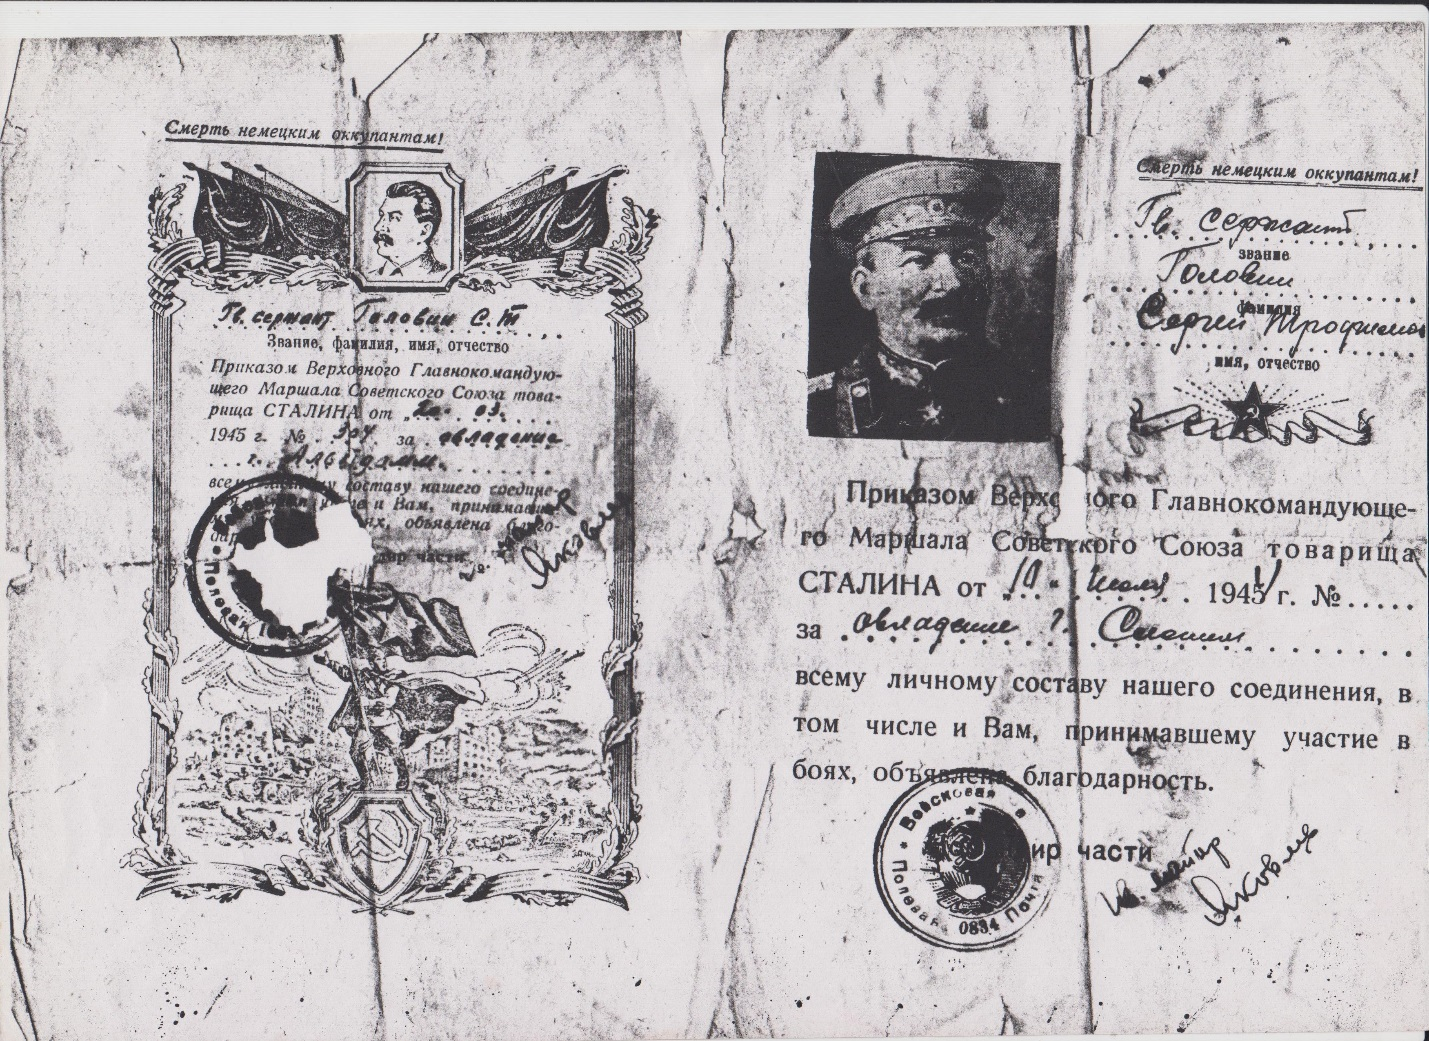 Смерть немецким оккупантам!
Гв. сержант Головин С. Т
Звание, фамилия, имя, отчество
Приказом Верховного Главнокомандую-
щего Маршала Советского Союза това-
рища СТАЛИНА от „20“ 03.
1945 г. № 304 за овладение
г. Альтдамм.
всему личному составу нашего соедине-
и Вам, принимавше
объявлена благо-
дар
части
Яковлев
Полевая
Смерть немецким оккупантам!
Гв. сержант
звание
Головин
фамилия
Сергей Трофимов
имя, отчество
Приказом Верховного Главнокомандующе-
го Маршала Советского Союза товарища
СТАЛИНА от „10“ июля 1944 г. №
за овладение г. Слоним
всему личному составу нашего соединения, в
том числе и Вам, принимавшему участие в
боях, объявлена благодарность.
ир части
Гв. майор
Яковлев
Войсковая
Полевая Почта 0834